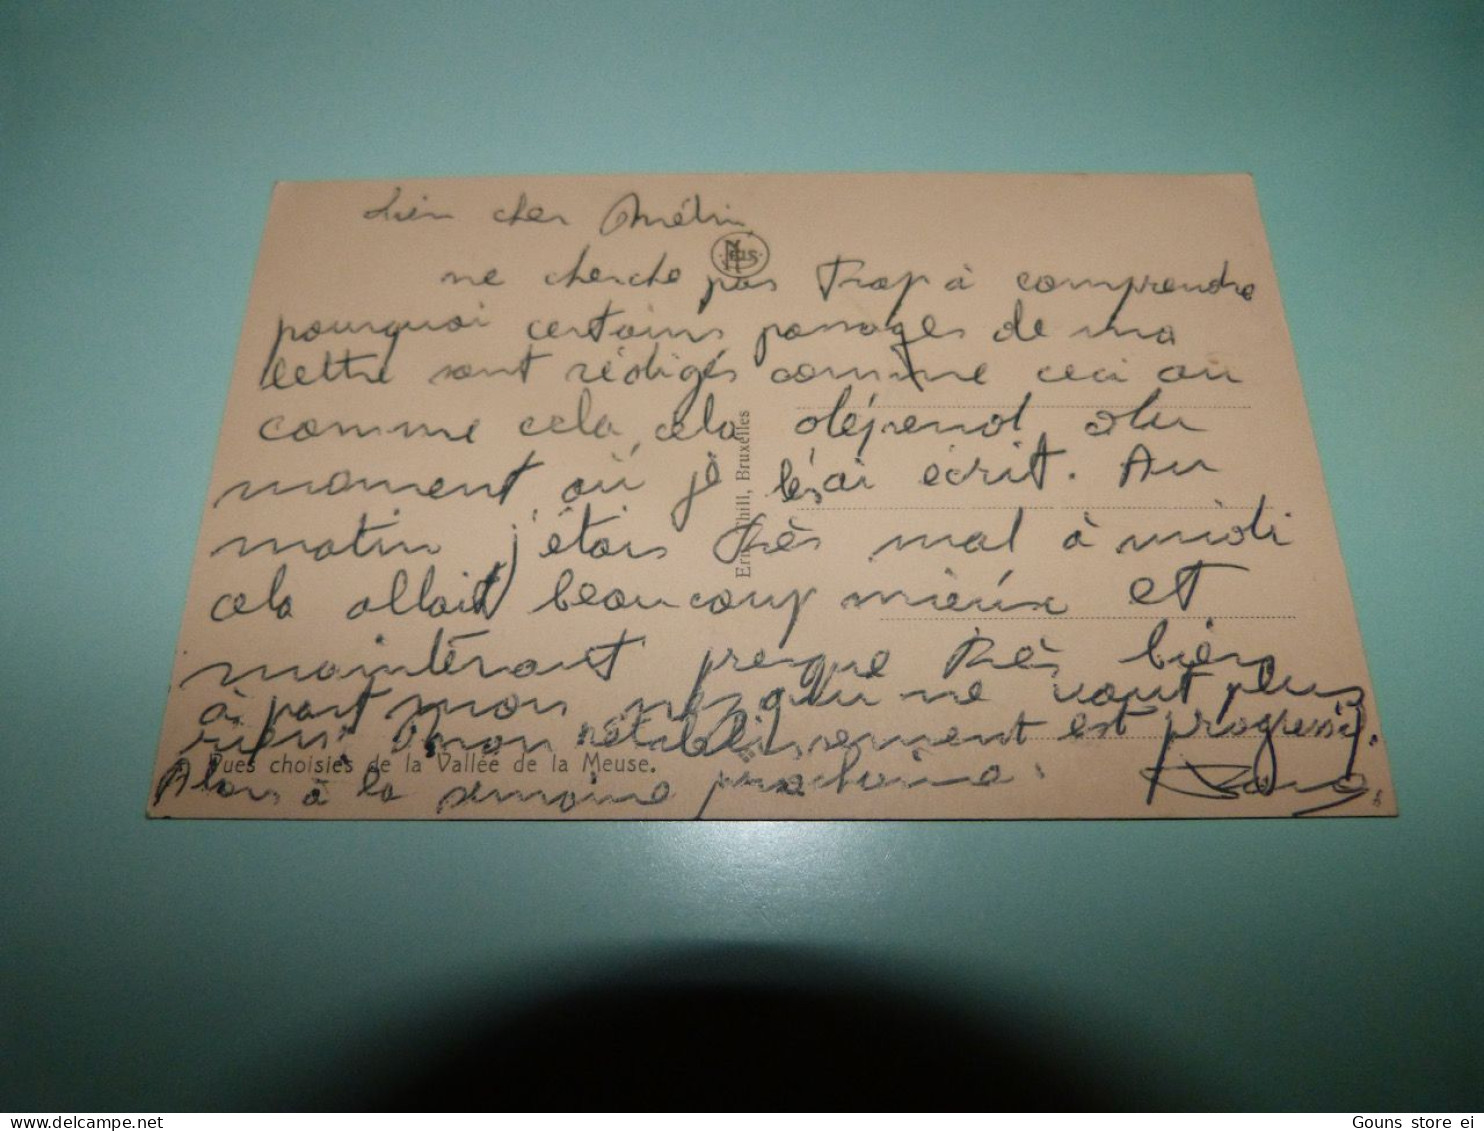 cher
ne cherche pas trop à comprendre
pourquoi certains passages de ma
lettre sont rédigés comme ceci ou
comme cela, cela dépend du
moment où je les ai écrit. Au
matin j'étais très mal à midi
cela allait beaucoup mieux et
maintenant presque très bien
à part mon nez qui ne vaut plus
rien! mon rétablissement est progressif.
Vues choisies de la Vallée de la Meuse.
Alors à la semaine prochaine.
Nels
Ern. Thill, Bruxelles
Gouns store ei